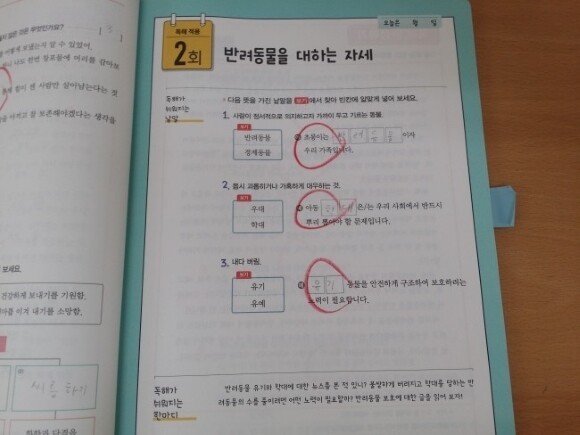 오늘은 월 일
독해 적용
2회
반려동물을 대하는 자세
독해가
쉬워지는
낱말
다음 뜻을 가진 낱말을 보기에서 찾아 빈칸에 알맞게 넣어 보세요.
1. 사람이 정서적으로 의지하고자 가까이 두고 기르는 동물.
보기
반려동물
경제동물
초롱이는
이자
우리 가족입니다.
2. 몹시 괴롭히거나 가혹하게 대우하는 것.
보기
우대
학대
아동
은/는 우리 사회에서 반드시
뿌리 뽑아야 할 문제입니다.
3. 내다 버림.
보기
유기
유예
유기 동물을 안전하게 구조하여 보호하려는
노력이 필요합니다.
독해가
쉬워지는
한마디
반려동물 유기와 학대에 대한 뉴스를 본 적 있니? 불쌍하게 버려지고 학대를 당하는 반
려동물의 수를 줄이려면 어떤 노력이 필요할까? 반려동물 보호에 대한 글을 읽어 보자!
않은 것은 무엇인가요?
힘이 센 사람만 살아남는다는 것
잘 보존해야겠다는 생각을
보세요.
건강하게 보내기를 기원함.
이겨 내기를 소망함.
씨름 하기